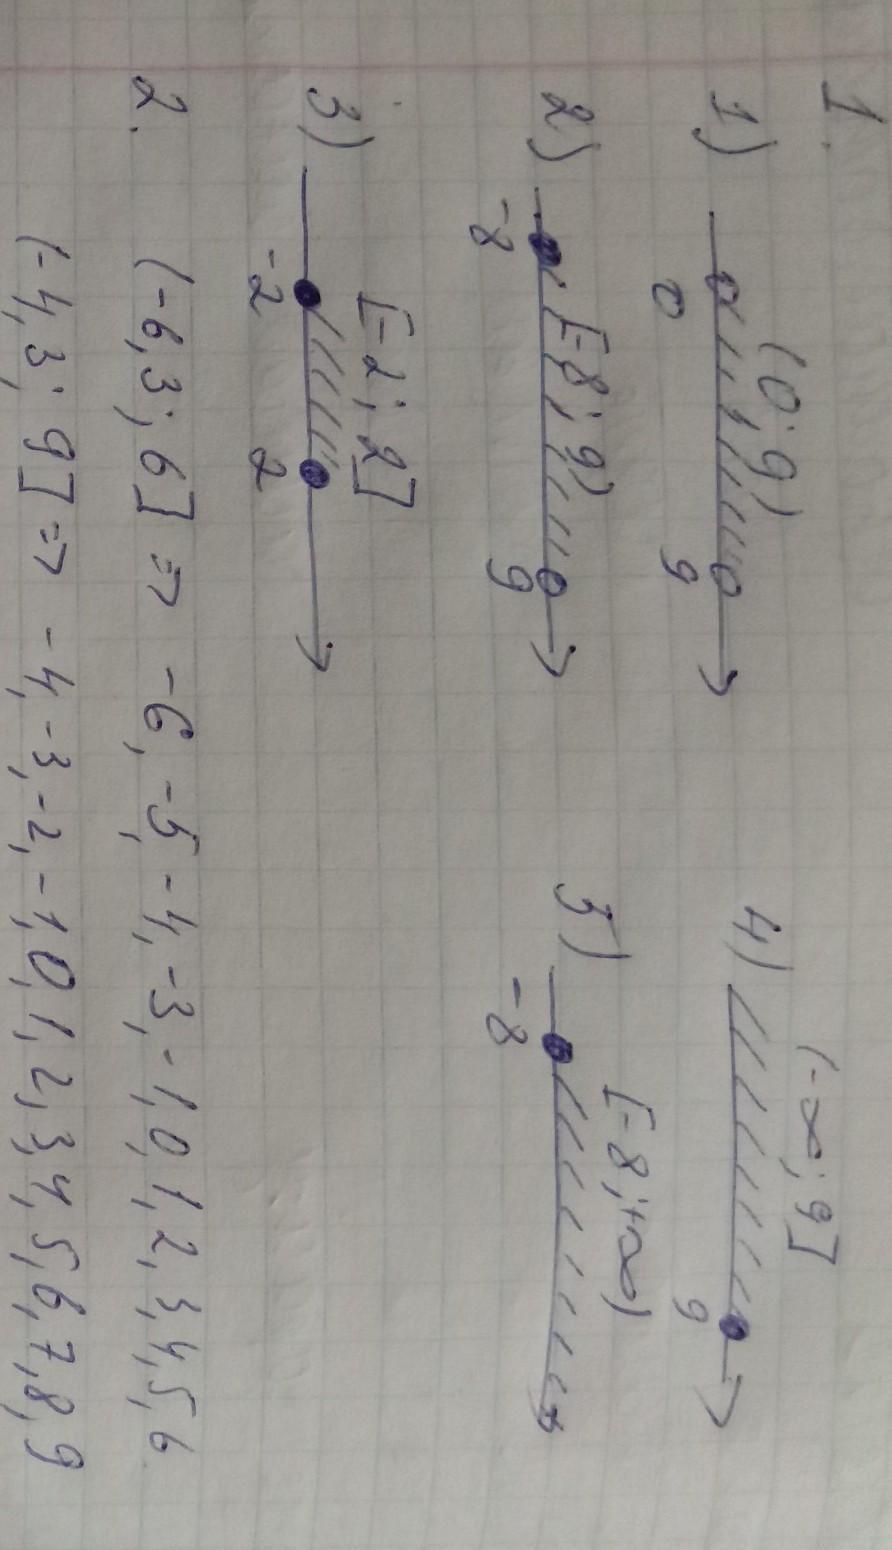 1.
1) (0; 9)
0 9
4) (-∞; 9]
9
2) [-8; 9)
-8 9
5) [-8; +∞)
-8
3) [-2; 2]
-2 2
2. (-6,3; 6] => -6, -5, -4, -3, -1, 0, 1, 2, 3, 4, 5, 6
(-4,3; 9] => -4, -3, -2, -1, 0, 1, 2, 3, 4, 5, 6, 7, 8, 9